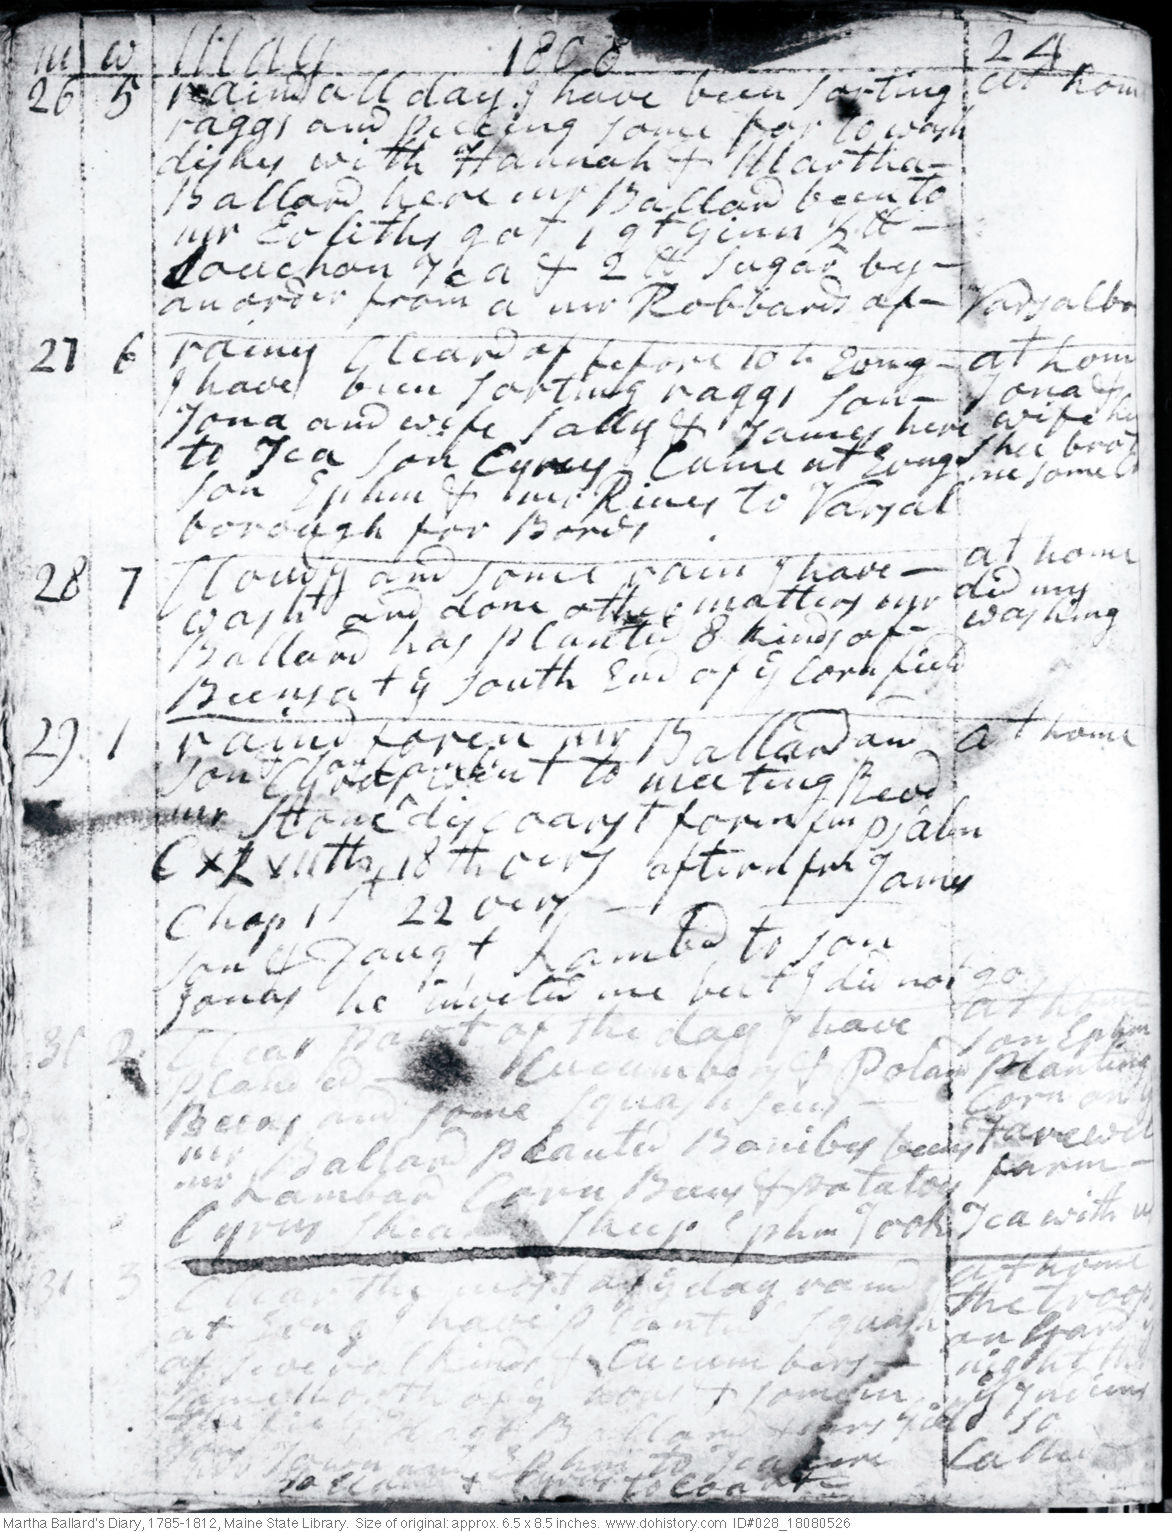 m w May 1808 24
26 5 raind all day. I have been sorting at hom
raggs and picking some for to wash
dishes with Hannah & Martha
Ballard here mr Ballard been to
mr got 1 qt Ginn
Souchon Tea & 2 lb Sugar by
an ordir from a mr Robbards of Varsalbo
27 6 rainy Cleard of before 10 h Evng at hom
I have been sorting raggs son Jona &
Jona and wife Sally & James here wife he
to Tea son Cyrus Came at Evng shee bro't
son Ephm & mr Rines to Varsal me some
borough for Bords
28 7 Cloudy and some rain I have at home
wash't and done other matters mr did my
Ballard has planted 8 kinds of washing
Beens at ÿ south End of ÿ Cornfield
29 1 raind foren mr Ballard and at home
son went to meeting Revd
mr Stone discoarst form fm Psalm
CXLVIIth 18th vers aftern fm James
Chap 1st 22 vers
son & Daugt Lambd to son
Jonas he invited me but I did not go.
31 2 Clear part of the day I have at home
planted Cucumbers & Poland son Ephm
Beens and some squash seeds Planting
Corn on ÿ
mr Ballard planted Bonibes beens Farewel
mr Lambard Corn Beens & potatoes farm
Cyrus shear sheep. Ephm Took Tea with u
31 3 Clear the most of ÿ day raind at home
at Evng I have planted squash the troop
of several kinds & Cucumbers on Guard
some North of ÿ hous & some in night the
the Ballard & mrs ÿ Indiens
Town and Ephm to Tea so
& Cyrus to Court Called
Martha Ballard's Diary, 1785-1812, Maine State Library. Size of original: approx. 6.5 x 8.5 inches. www.dohistory.com ID#028_18080526